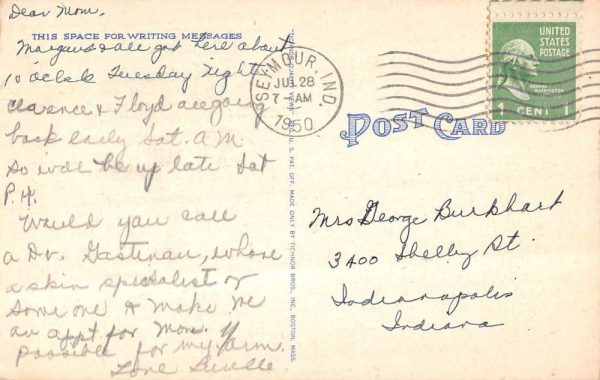 Dear Mom.
THIS SPACE FOR WRITING MESSAGES
& all got here about
10 o'clock Tuesday night.
Clarence & Floyd are going
back early Sat. A.M.
So will be up late Sat
P.M.
Would you call
a Dr. Gastineau, whose
a skin specialist or
some one & make me
an appt for Mon. if
possible for my arm.
Love Lucille
SEYMOUR, IND.
JUL 28
7 - AM
1950
UNITED
STATES
POSTAGE
GEORGE
WASHINGTON
1 CENT 1
POST CARD
Mrs George Burkhart
3400 Shelley St.
Indianapolis
Indiana
REG. U. S. PAT. OFF. MADE ONLY BY TICHNOR BROS., INC., BOSTON, MASS.